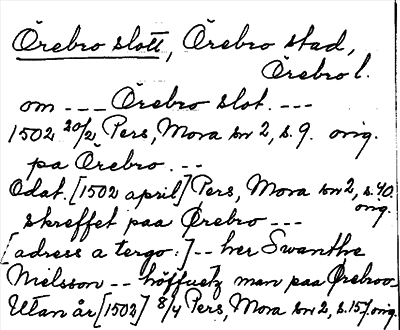 Örebro slott, Örebro stad,
Örebro l.
om --- Örebro slot. ---
1502 20/2 Pers, Mora br 2, s. 9. orig.
pa Örebro. --
Odat. [1502 april] Pers, Mora br 2, s. 40.
orig.
skreffet paa Ørebro ---
[adress a tergo:] -- her Swanthe
Nielsson -- höffuetz man paa Ørebroo-
Utan år [1502] 8/4 Pers, Mora br 2, s. 157, orig.